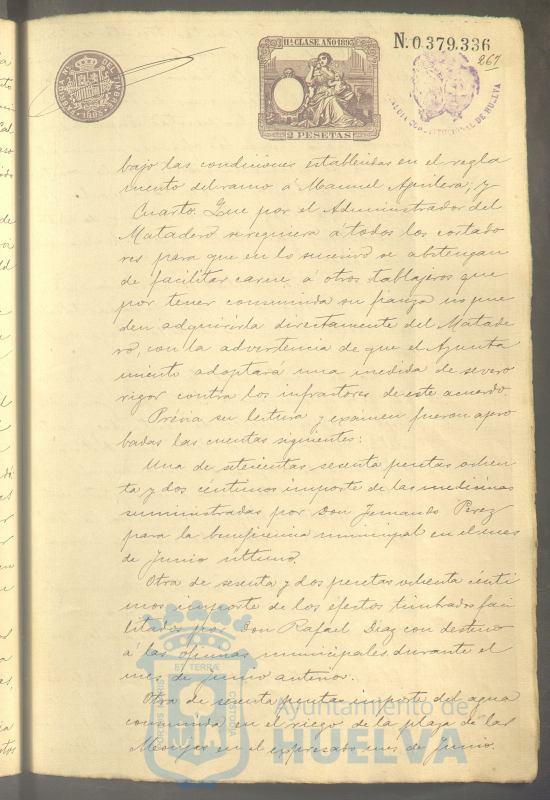 11ª CLASE AÑO 1895
2 PESETAS
N. 0.379.336
267
bajo las condiciones establecidas en el regla
mento del ramo á Manuel Aguilera; y
Cuarto. Que por el Administrador del
Matadero se requiera á todos los cortado
res para que en lo sucesivo se abstengan
de facilitar carne á otros tablajeros que
por tener consumida su fianza no pue
den adquirirla directamente del Matade
ro, con la advertencia de que el Ayunta
miento adoptará una medida de severo
rigor contra los infractores de este acuerdo.
Prévia su lectura y exámen fueron apro
badas las cuentas siguientes:
Una de setecientas sesenta pesetas ochen
ta y dos céntimos importe de las medicinas
suministradas por Don Fernando Perez
para la beneficencia municipal en el mes
de Junio último.
Otra de sesenta y dos pesetas ochenta cénti
mos importe de los efectos timbrados faci
litados por Don Rafael Diaz con destino
á las oficinas municipales durante el
mes de junio anterior.
Otra de pesetas importe del agua
consumida en el riego de la plaza de las
Monjas en el expresado mes de Junio.
Ayuntamiento de
HUELVA